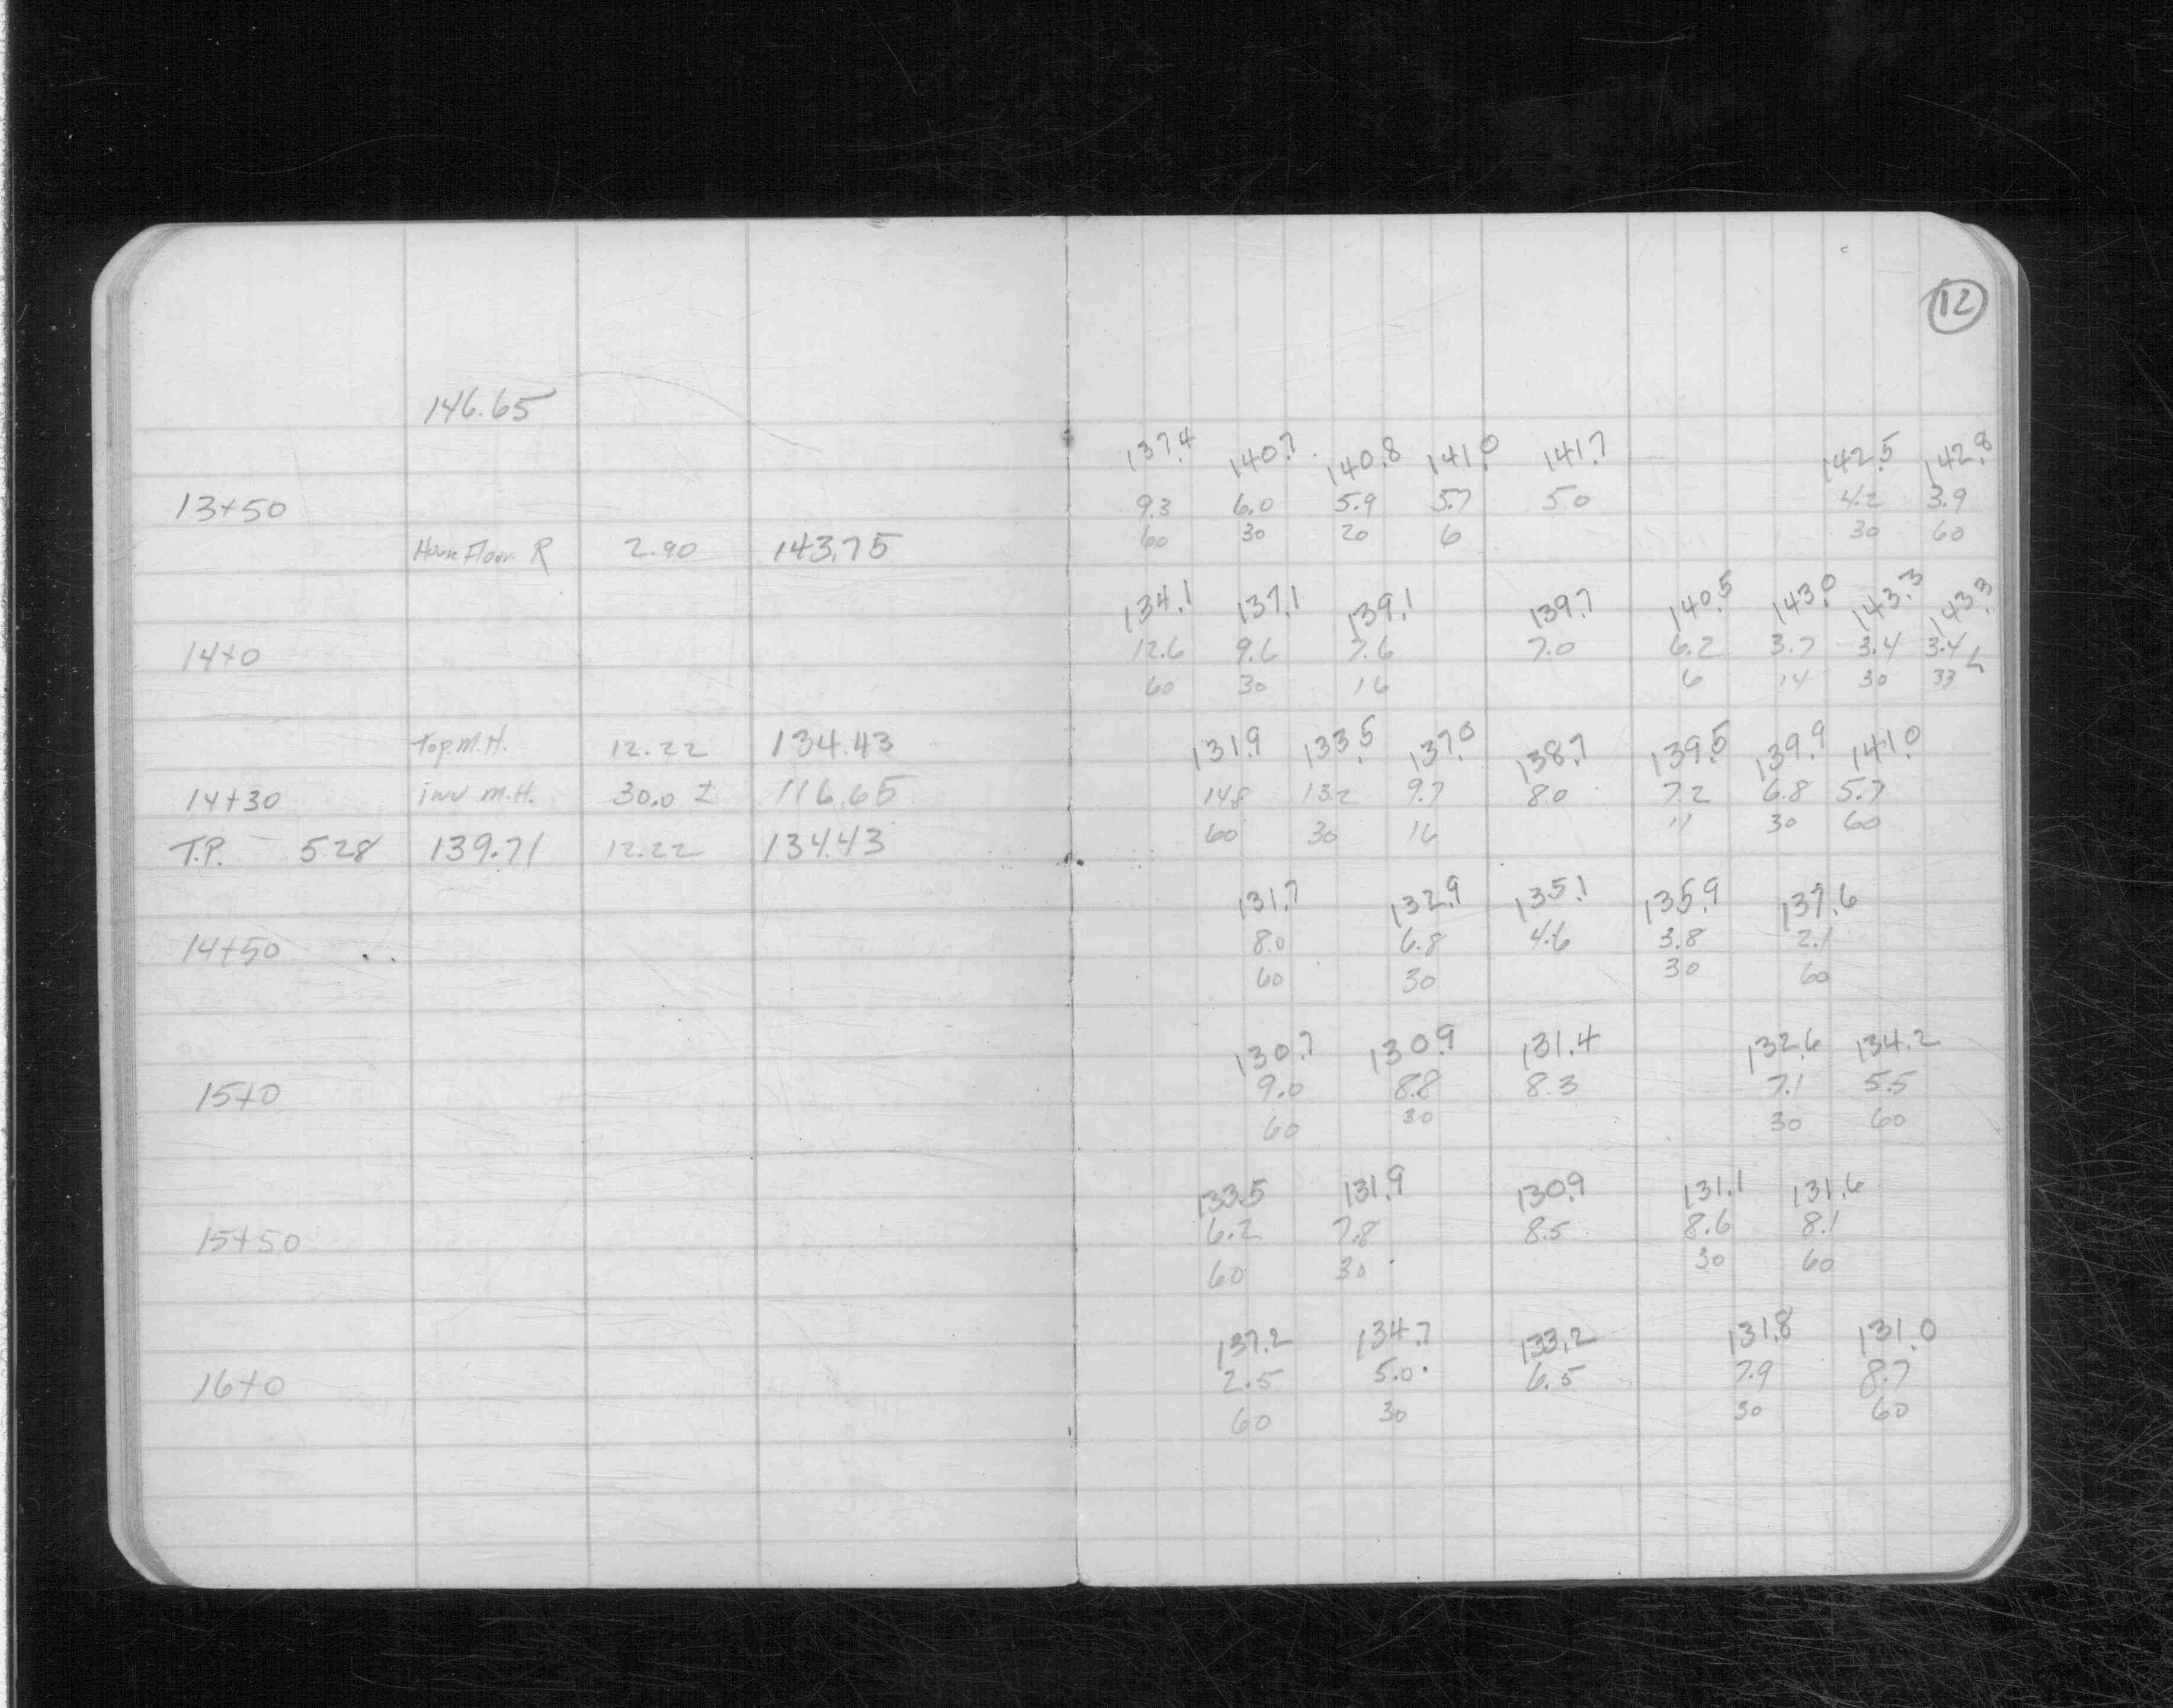 12
146.65
137.4 140.7 140.8 141.0 141.7 142.5 142.8
13+50 9.3 6.0 5.9 5.7 5.0 4.2 3.9
60 30 20 6 30 60
House Floor R 2.90 143.75
134.1 137.1 139.1 139.7 140.5 143.0 143.3 143.3
14+0 12.6 9.6 7.6 7.0 6.2 3.7 3.4 3.4
60 30 16 6 14 30 33
Top M.H. 12.22 134.43 131.9 133.5 137.0 138.7 139.5 139.9 141.0
14+30 inv M.H. 30.0 ± 116.65 14.8 13.2 9.7 8.0 7.2 6.8 5.7
T.P. 5.28 139.71 12.22 134.43 60 30 16 11 30 60
131.7 132.9 135.1 135.9 137.6
14+50 8.0 6.8 4.6 3.8 2.1
60 30 30 60
130.7 130.9 131.4 132.6 134.2
15+0 9.0 8.8 8.3 7.1 5.5
60 30 30 60
133.5 131.9 130.9 131.1 131.6
15+50 6.2 7.8 8.5 8.6 8.1
60 30 30 60
137.2 134.7 133.2 131.8 131.0
16+0 2.5 5.0 6.5 7.9 8.7
60 30 30 60